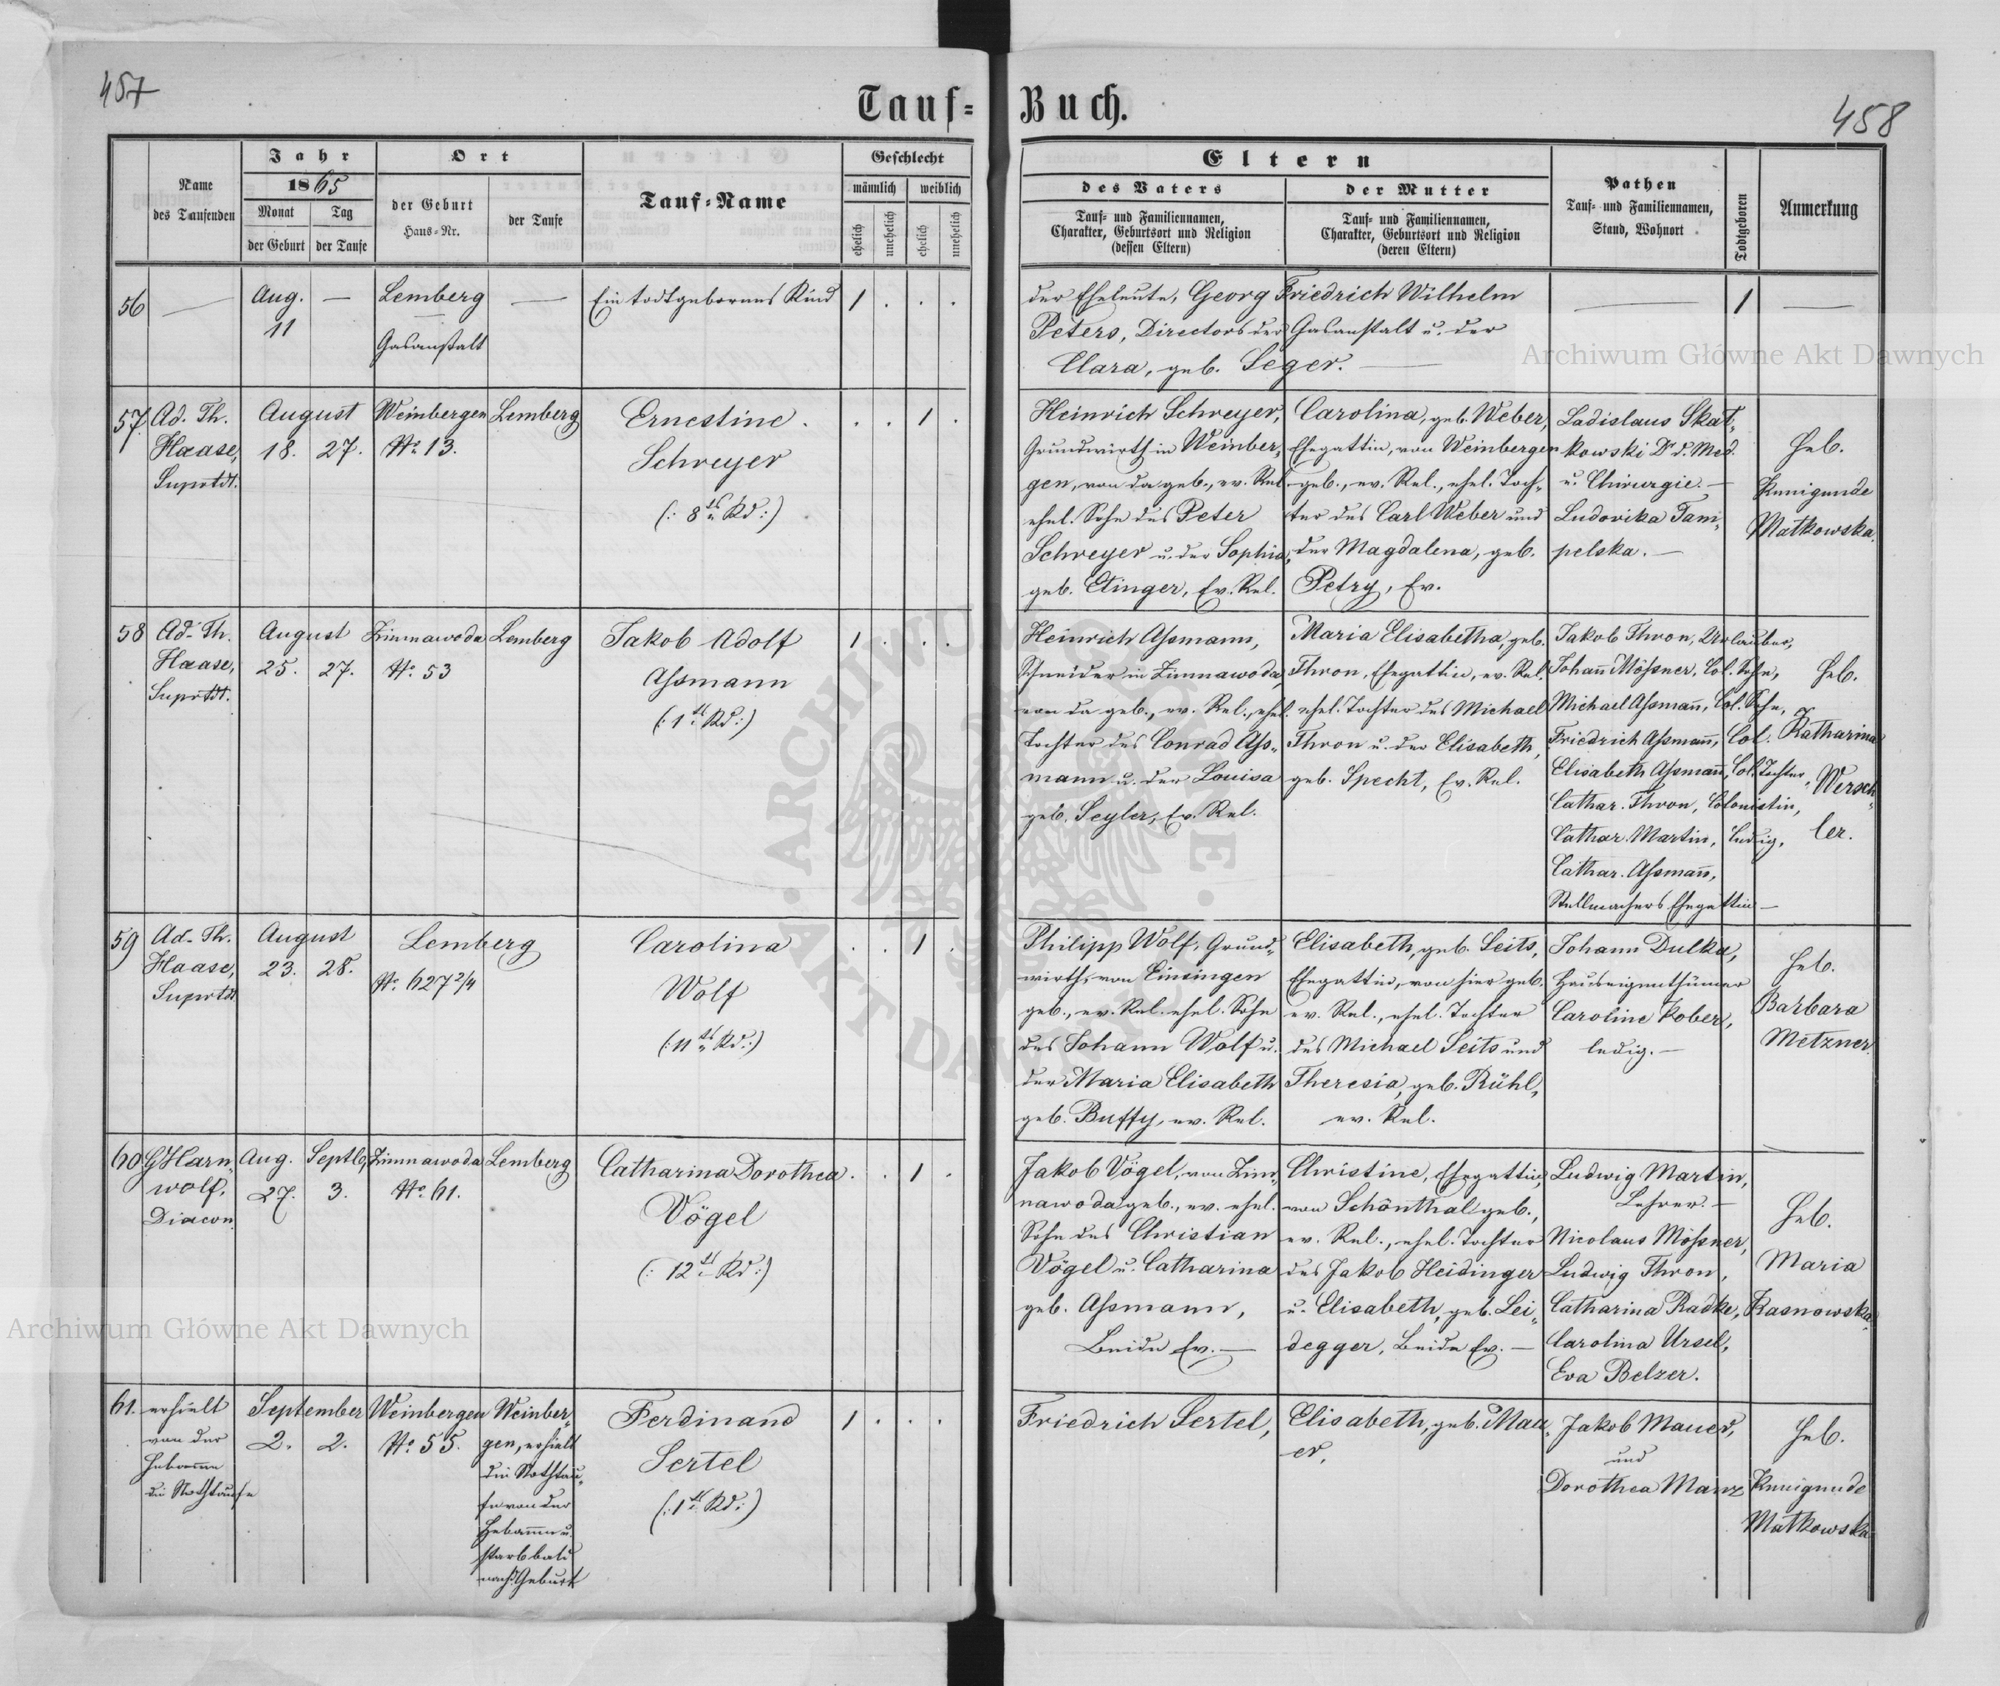 457
Tauf-
Buch.
458
Name
des Taufenden
Jahr
1865
Monat
Tag
der Geburt
der Taufe
Ort
der Geburt
Haus-Nr.
der Taufe
Tauf-Name
Geschlecht
männlich
weiblich
ehelich
unehelich
ehelich
unehelich
Eltern
des Vaters
Tauf- und Familiennamen,
Charakter, Geburtsort und Religion
(dessen Eltern)
der Mutter
Tauf- und Familiennamen,
Charakter, Geburtsort und Religion
(deren Eltern)
Pathen
Tauf- und Familiennamen,
Stand, Wohnort
Todtgeboren
Anmerkung
56
—
Aug.
11
—
Lemberg
Gasanstalt
—
Ein todtgebornes Kind
1 . . .
der Eheleute, Georg Friedrich Wilhelm
Peters, Directors der Gasanstalt u. der
Clara, geb. Seger. —
—
1
—
57.
Ad. Th.
Haase,
Suprtdt.
August
18. 27.
Weinbergen
No 13.
Lemberg
Ernestine
Schreyer
(: 8tes Kd :)
. . 1 .
Heinrich Schreyer,
Grundwirth in Weinber-
gen, von da geb., ev. Rel.
ehel. Sohn des Peter
Schreyer u. der Sophia,
geb. Etinger, Ev. Rel.
Carolina, geb. Weber,
Ehegattin, von Weinbergen
geb., ev. Rel., ehel. Toch-
ter des Carl Weber und
der Magdalena, geb.
Petry, Ev.
Ladislaus Skat-
kowski Dr d. Med.
u. Chirurgie. —
Ludovika Tam-
pelska. —
Heb.
Kunigunde
Matkowska.
58
Ad. Th.
Haase,
Suprtdt.
August
25. 27.
Zimnawoda
No 53
Lemberg
Jakob Adolf
Assmann
(: 1tes Kd :)
1 . . .
Heinrich Assmann,
Schneider in Zimnawoda,
von da geb., ev. Rel., ehel.
Tochter des Conrad Ass-
mann u. der Louisa
geb. Seyler, Ev. Rel.
Maria Elisabetha, geb.
Thron, Ehegattin, ev. Rel.
ehel. Tochter des Michael
Thron u. der Elisabeth,
geb. Specht, Ev. Rel.
Jakob Thron, Urlauber,
Johann Mössner, Col. Sohn,
Michael Assmann, Col. Sohn,
Friedrich Assmann, Col.
Elisabeth Assmann, Col. Tochter,
Cathar. Thron, Colonistin,
Cathar. Martin, ledig,
Cathar. Assmann,
Stellmachers Ehegattin —
Heb.
Katharina
Wersch-
ler.
59
Ad. Th.
Haase,
Suprtdt
August
23. 28.
Lemberg
No 627 2/4
Carolina
Wolf
(: 11tes Kd :)
. . 1 .
Philipp Wolf, Grund-
wirth, von Einsingen
geb., ev. Rel. ehel. Sohn
des Johann Wolf u.
der Maria Elisabeth
geb. Buffy, ev. Rel.
Elisabeth, geb. Seits,
Ehegattin, von hier geb.
ev. Rel., ehel. Tochter
des Michael Seits und
Theresia, geb. Rühl,
ev. Rel.
Johann Dulka,
Hauseigenthümer
Caroline Kober,
ledig. —
Heb.
Barbara
Metzner.
60
G Harn-
wolf,
Diacon.
Aug. Septb.
27. 3.
Zimnawoda
No 61.
Lemberg
Catharina Dorothea
Vögel
(: 12tes Kd :)
. . 1 .
Jakob Vögel, von Zim-
nawoda geb., ev. ehel.
Sohn des Christian
Vögel u. Catharina
geb. Assmann,
Beide Ev. —
Christine, Ehegattin,
von Schönthal geb.,
ev. Rel., ehel. Tochter
des Jakob Heidinger
u. Elisabeth, geb. Lei-
degger, Beide Ev. —
Ludwig Martin,
Lehrer. —
Nicolaus Mössner,
Ludwig Thron,
Catharina Radke,
Carolina Ursel,
Eva Belzer.
Heb.
Maria
Rasnowska.
61.
erhielt
von der
Hebamme
die Nothtaufe
September
2. 2.
Weinbergen
No 55.
Weinber-
gen, erhielt
die Nothtau-
fe von der
Hebamme u.
starb bald
nach d Geburt
Ferdinand
Sertel
(: 1tes Kd :)
1 . . .
Friedrich Sertel,
Elisabeth, geb. Mau-
er,
Jakob Mauer,
und
Dorothea Manz
Heb.
Kunigunde
Matkowska
Archiwum Główne Akt Dawnych
Archiwum Główne Akt Dawnych
ARCHIWUM GŁÓWNE AKT DAWNYCH